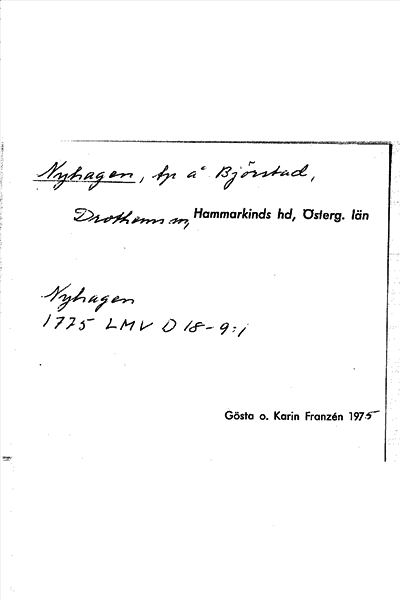 Nyhagen, tp å Björstad,
Drothems sn, Hammarkinds hd, Österg. län
Nyhagen
1775 LMV D 18-9:1
Gösta o. Karin Franzén 1975